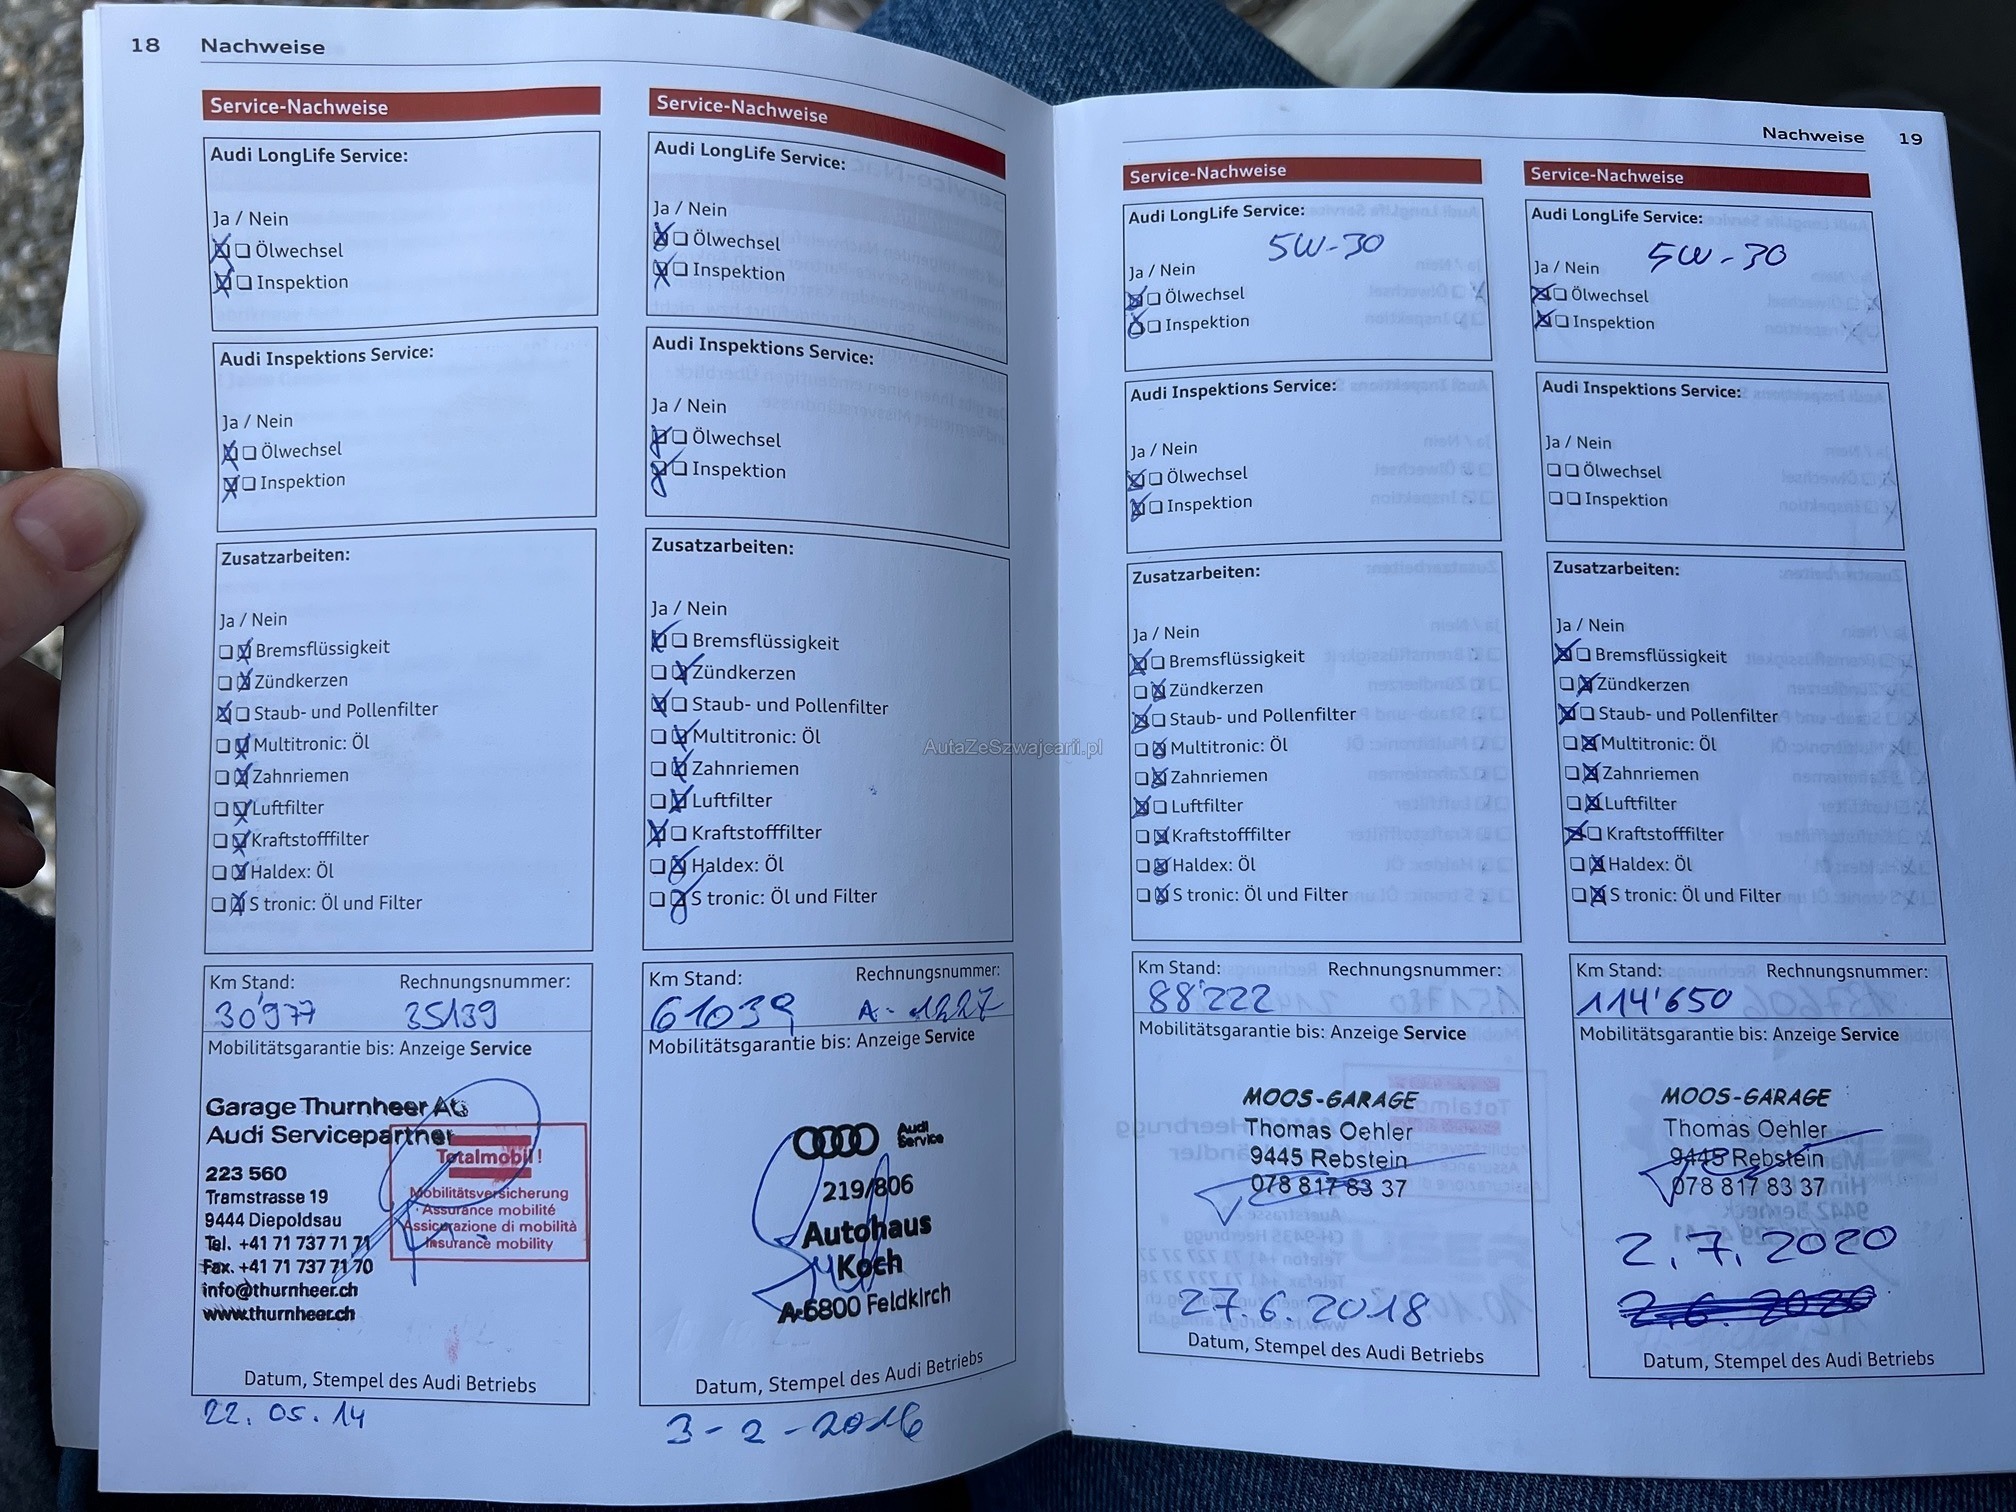 18 Nachweise
Service-Nachweise
Audi LongLife Service:
Ja / Nein
Ölwechsel
Inspektion
Audi Inspektions Service:
Ja / Nein
Ölwechsel
Inspektion
Zusatzarbeiten:
Ja / Nein
Bremsflüssigkeit
Zündkerzen
Staub- und Pollenfilter
Multitronic: Öl
Zahnriemen
Luftfilter
Kraftstofffilter
Haldex: Öl
S tronic: Öl und Filter
Km Stand: Rechnungsnummer:
30'977 35139
Mobilitätsgarantie bis: Anzeige Service
Garage Thurnheer AG
Audi Servicepartner
223 560
Tramstrasse 19
9444 Diepoldsau
Tel. +41 71 737 71 71
Fax. +41 71 737 71 70
info@thurnheer.ch
www.thurnheer.ch
Totalmobil!
Mobilitätsversicherung
Assurance mobilité
Assicurazione di mobilità
Insurance mobility
Datum, Stempel des Audi Betriebs
22.05.14
Service-Nachweise
Audi LongLife Service:
Ja / Nein
Ölwechsel
Inspektion
Audi Inspektions Service:
Ja / Nein
Ölwechsel
Inspektion
Zusatzarbeiten:
Ja / Nein
Bremsflüssigkeit
Zündkerzen
Staub- und Pollenfilter
Multitronic: Öl
Zahnriemen
Luftfilter
Kraftstofffilter
Haldex: Öl
S tronic: Öl und Filter
Km Stand: Rechnungsnummer:
61039 A-1227
Mobilitätsgarantie bis: Anzeige Service
Audi
Service
219/806
Autohaus
Koch
A-6800 Feldkirch
Datum, Stempel des Audi Betriebs
3-2-2016
Nachweise 19
Service-Nachweise
Audi LongLife Service:
5W-30
Ja / Nein
Ölwechsel
Inspektion
Audi Inspektions Service:
Ja / Nein
Ölwechsel
Inspektion
Zusatzarbeiten:
Ja / Nein
Bremsflüssigkeit
Zündkerzen
Staub- und Pollenfilter
Multitronic: Öl
Zahnriemen
Luftfilter
Kraftstofffilter
Haldex: Öl
S tronic: Öl und Filter
Km Stand: Rechnungsnummer:
88'222
Mobilitätsgarantie bis: Anzeige Service
MOOS-GARAGE
Thomas Oehler
9445 Rebstein
078 817 83 37
27.6.2018
Datum, Stempel des Audi Betriebs
Service-Nachweise
Audi LongLife Service:
5W-30
Ja / Nein
Ölwechsel
Inspektion
Audi Inspektions Service:
Ja / Nein
Ölwechsel
Inspektion
Zusatzarbeiten:
Ja / Nein
Bremsflüssigkeit
Zündkerzen
Staub- und Pollenfilter
Multitronic: Öl
Zahnriemen
Luftfilter
Kraftstofffilter
Haldex: Öl
S tronic: Öl und Filter
Km Stand: Rechnungsnummer:
114'650
Mobilitätsgarantie bis: Anzeige Service
MOOS-GARAGE
Thomas Oehler
9445 Rebstein
078 817 83 37
2.7.2020
2.6.2020
Datum, Stempel des Audi Betriebs
AutaZeSzwajcarii.pl